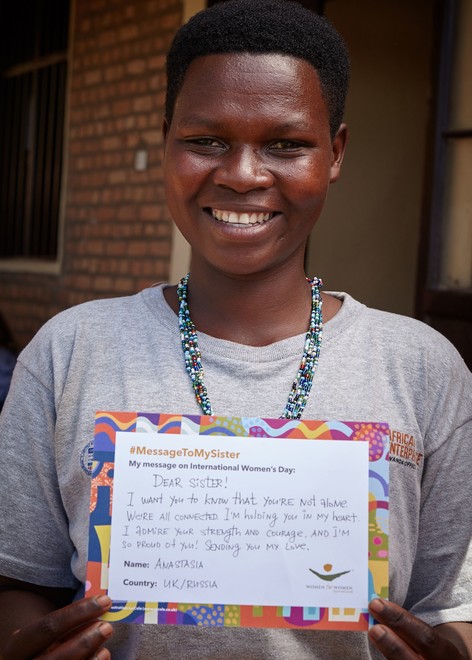 #MessageToMySister
My message on International Women's Day:
DEAR SISTER!
I WANT YOU TO KNOW THAT YOU'RE NOT ALONE
WE'RE ALL CONNECTED. I'M HOLDING YOU IN MY HEART.
I ADMIRE YOUR STRENGTH AND COURAGE, AND I'M
SO PROUD OF YOU! SENDING YOU MY LOVE,
Name: ANASTASIA
Country: UK/RUSSIA
WOMEN FOR WOMEN